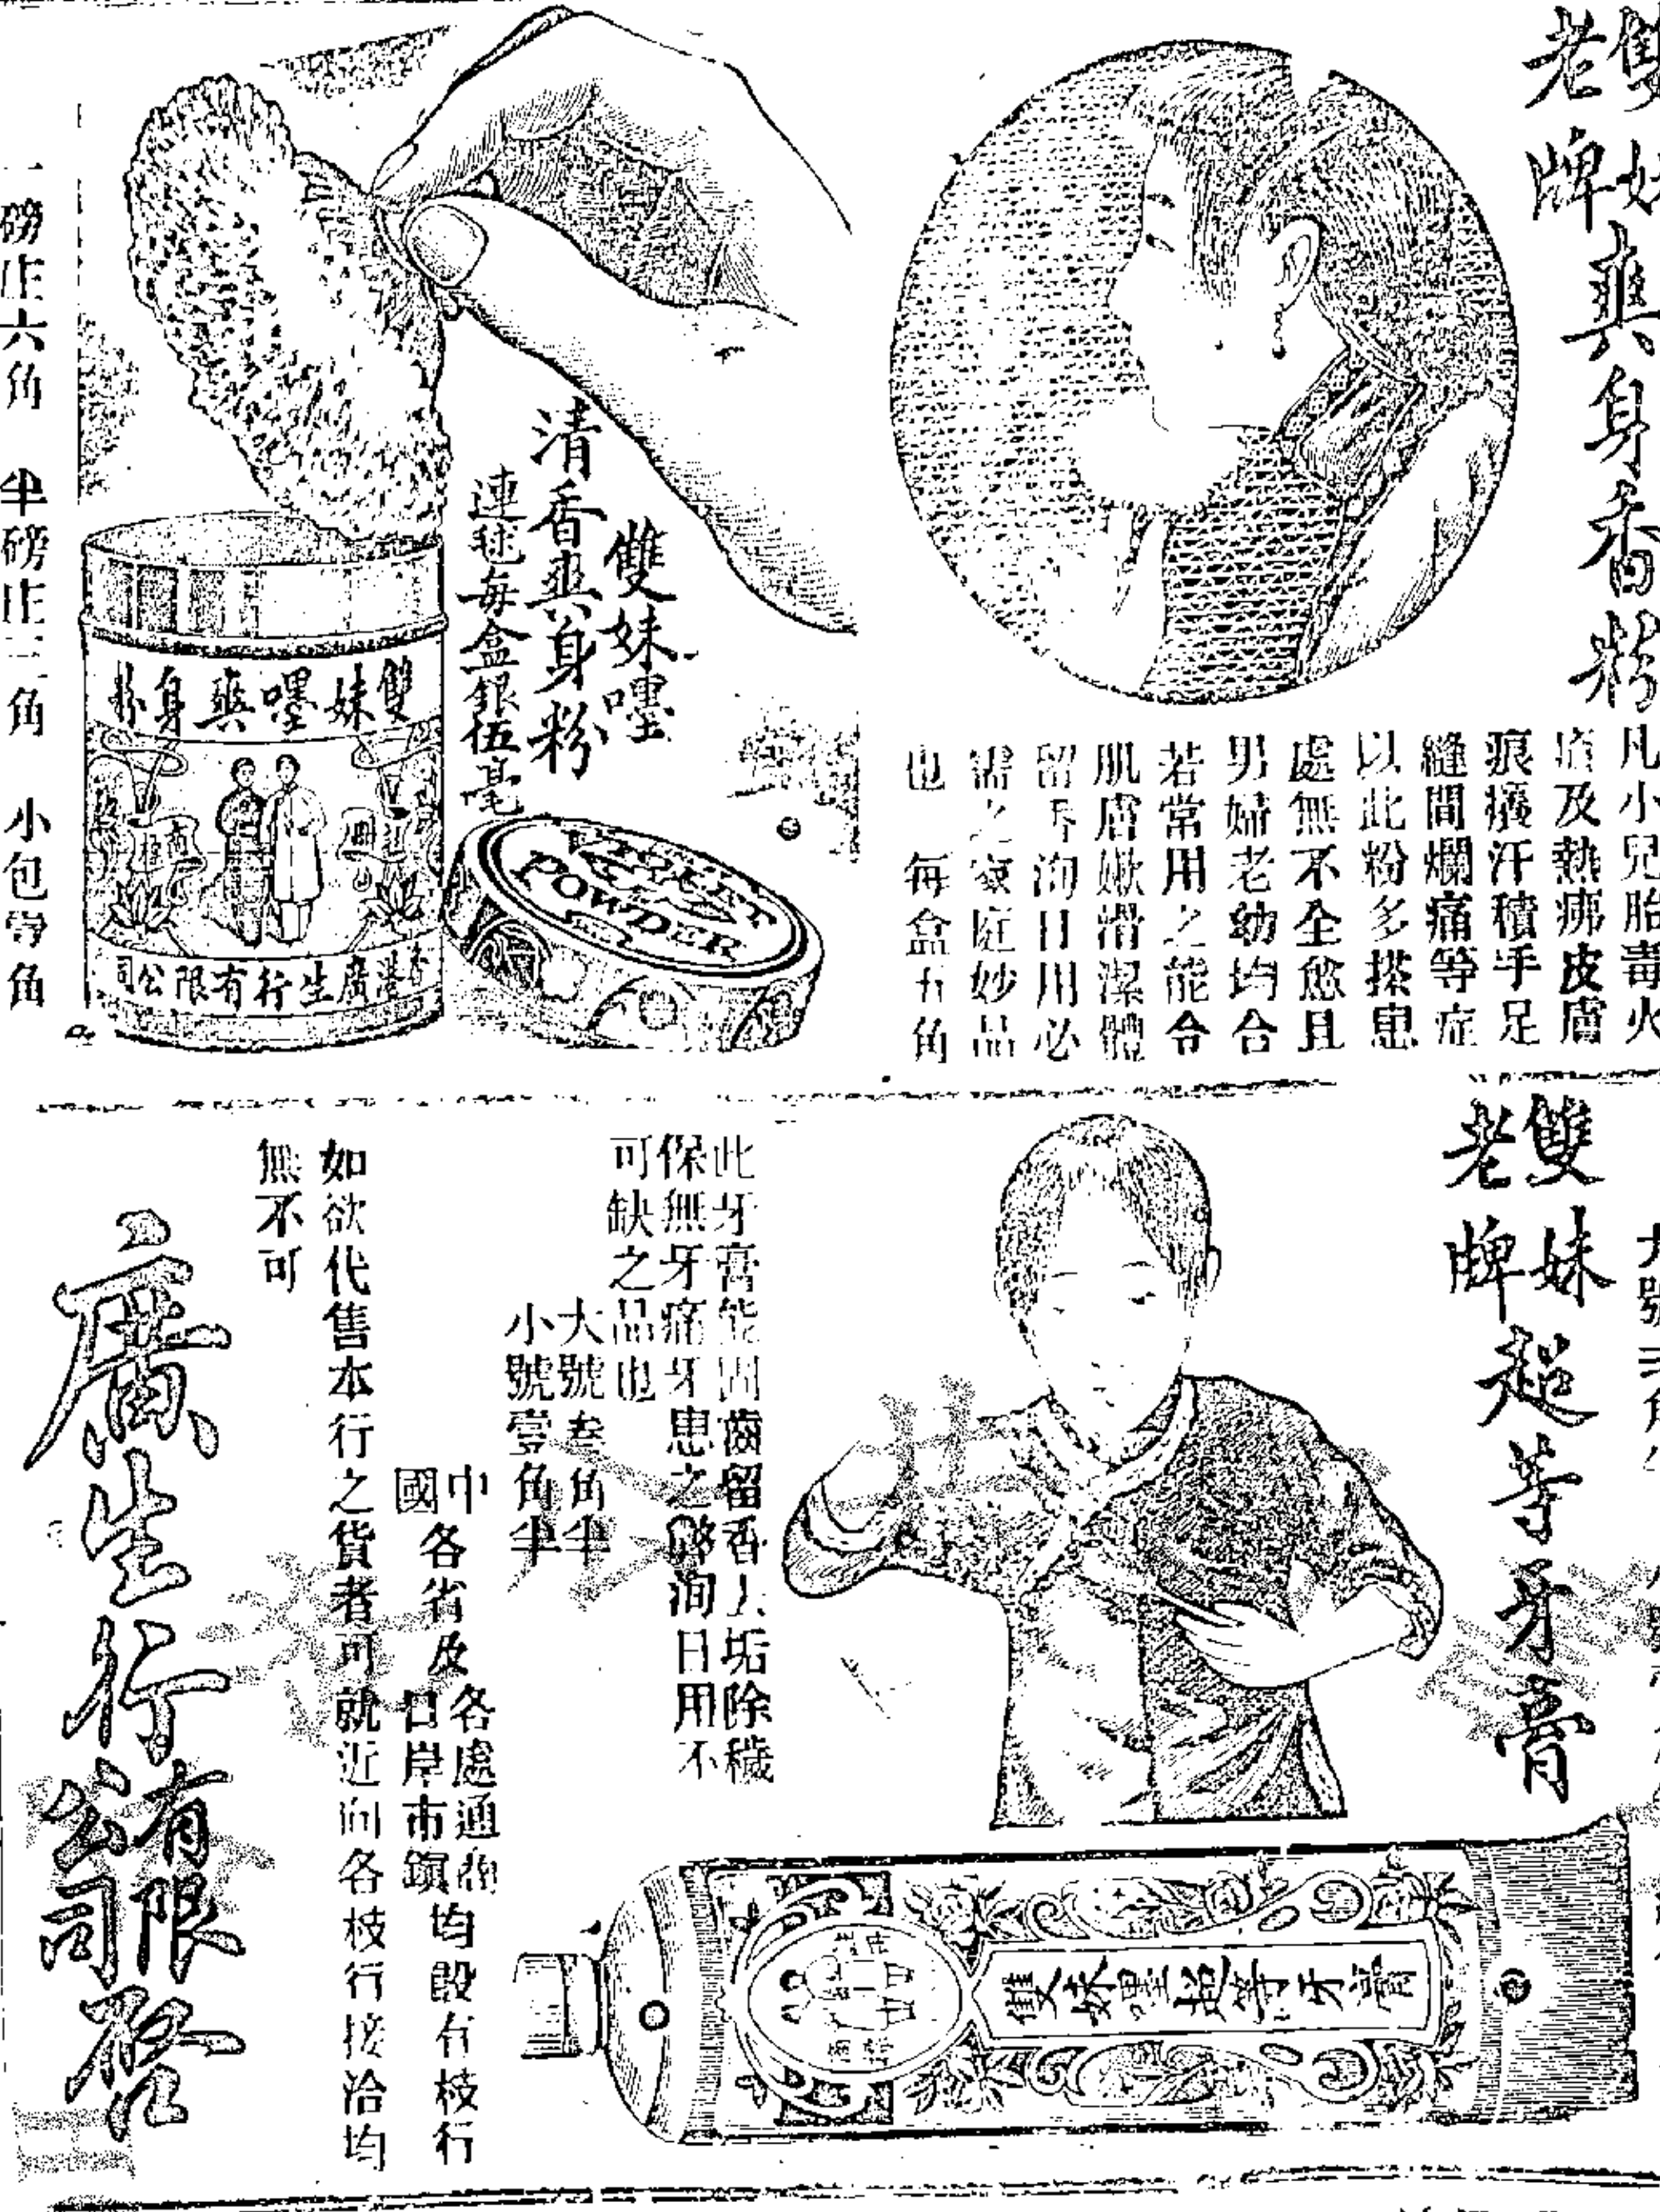 雙妹
老牌
爽身香粉
凡小兒胎毒火
瘡及熱痱皮膚
痕癢汗積手足
縫間爛痛等症
以此粉多搽患
處無不全愈且
男婦老幼均合
若常用之能令
肌膚嫩滑潔體
留香洵日用必
需之家庭妙品
也 每盒五角
雙妹嚜
清香爽身粉
連毬每盒銀伍毫
雙妹嚜爽身粉
香港廣生行有限公司
TOILET
POWDER
一磅庄六角 半磅庄三角 小包壹角
雙妹
老牌
超等牙膏
此牙膏能固齒留香去垢除穢
保無牙痛牙患之弊洵日用不
可缺之品也
大號叁角半
小號壹角半
中國各省及各處通商口岸市鎮均設有枝行
如欲代售本行之貨者可就近向各枝行接洽均
無不可
廣生行有限公司啓
雙妹嚜超等牙膏